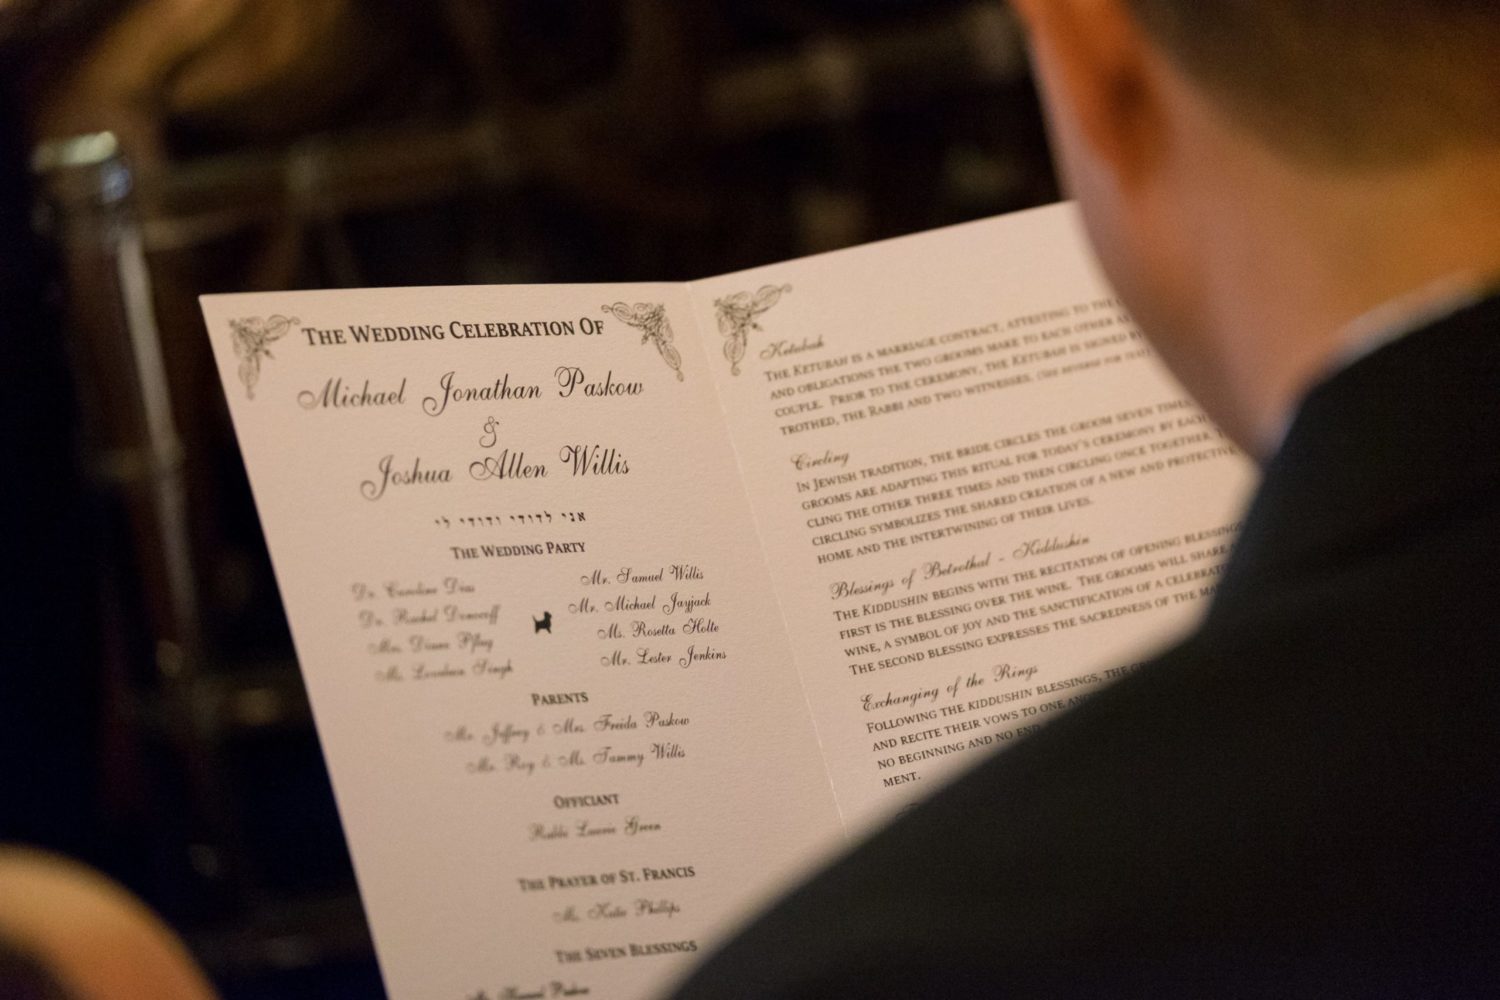 THE WEDDING CELEBRATION OF
Michael Jonathan Paskow
&
Joshua Allen Willis
אני לדודי ודודי לי
THE WEDDING PARTY
Dr. Caroline Dias
Dr. Rachel
Mrs. Diane
Ms. Singh
Mr. Samuel Willis
Mr. Michael Jayjack
Ms. Rosetta Holte
Mr. Lester Jenkins
PARENTS
Mr. Jeffrey & Mrs. Freida Paskow
Mr. Roy & Ms. Tammy Willis
OFFICIANT
Rabbi Laurie Green
THE PRAYER OF ST. FRANCIS
Ms. Katie Phillips
THE SEVEN BLESSINGS
Paskow
Ketubah
THE KETUBAH IS A MARRIAGE CONTRACT, ATTESTING TO THE
AND OBLIGATIONS THE TWO GROOMS MAKE TO EACH OTHER AS
COUPLE. PRIOR TO THE CEREMONY, THE KETUBAH IS SIGNED
TROTHED, THE RABBI AND TWO WITNESSES. (SEE REVERSE FOR
Circling
IN JEWISH TRADITION, THE BRIDE CIRCLES THE GROOM SEVEN TIMES
GROOMS ARE ADAPTING THIS RITUAL FOR TODAY'S CEREMONY BY EACH
CLING THE OTHER THREE TIMES AND THEN CIRCLING ONCE TOGETHER.
CIRCLING SYMBOLIZES THE SHARED CREATION OF A NEW AND PROTECTIVE
HOME AND THE INTERTWINING OF THEIR LIVES.
Blessings of Betrothal - Kiddushin
THE KIDDUSHIN BEGINS WITH THE RECITATION OF OPENING BLESSINGS
FIRST IS THE BLESSING OVER THE WINE. THE GROOMS WILL SHARE
WINE, A SYMBOL OF JOY AND THE SANCTIFICATION OF A CELEBRAT
THE SECOND BLESSING EXPRESSES THE SACREDNESS OF THE
Exchanging of the Rings
FOLLOWING THE KIDDUSHIN BLESSINGS, THE
AND RECITE THEIR VOWS TO ONE
NO BEGINNING AND NO END
MENT.